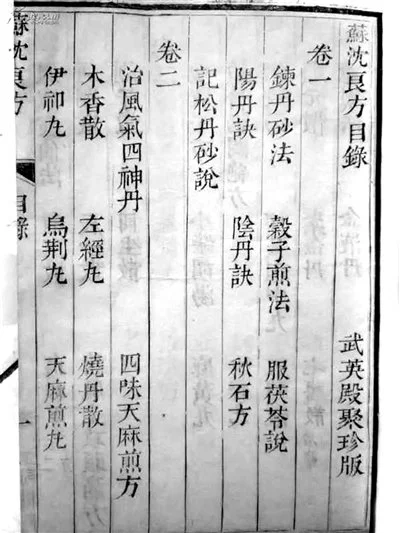 蘇沈良方目錄 武英殿聚珍版
卷一
鍊丹砂法 穀子煎法 服茯苓說
陽丹訣 陰丹訣 秋石方
記松丹砂說
卷二
治風氣四神丹 四味天麻煎方
木香散 左經丸 燒丹散
伊祁丸 烏荆丸 天麻煎丸
蘇沈良方 目錄 一